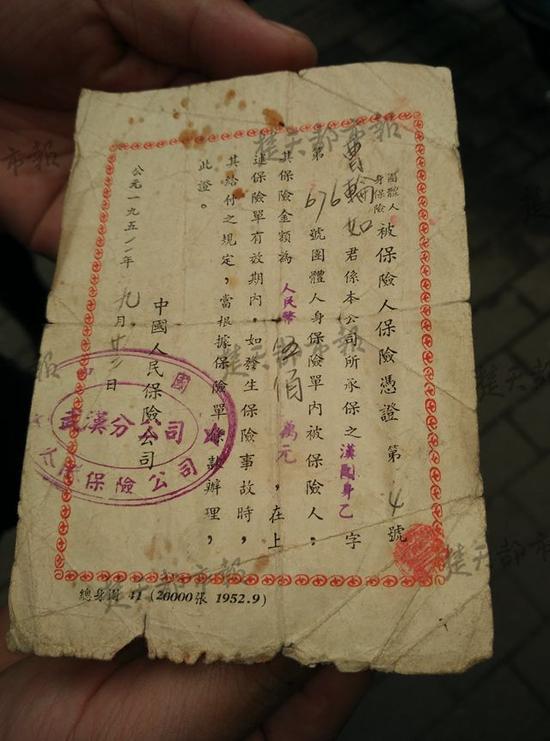 團體人身保險
被保險人保險憑證 第 4 號
曹輪如 君係本公司所承保之漢團身乙字
第 676 號團體人身保險單內被保險人。
其保險金額為 人民幣 伍佰 萬元，在上
述保險單有效期內，如發生保險事故時，
其給付之規定，當根據保險單條款辦理，
此證。
中國人民保險公司
公元一九五二年九月 日
武漢分公司
保險公司
總身團 41 (20000張 1952.9)
楚天都市報
楚天都市報
楚天都市報
楚天都市報
楚天都市報
市報